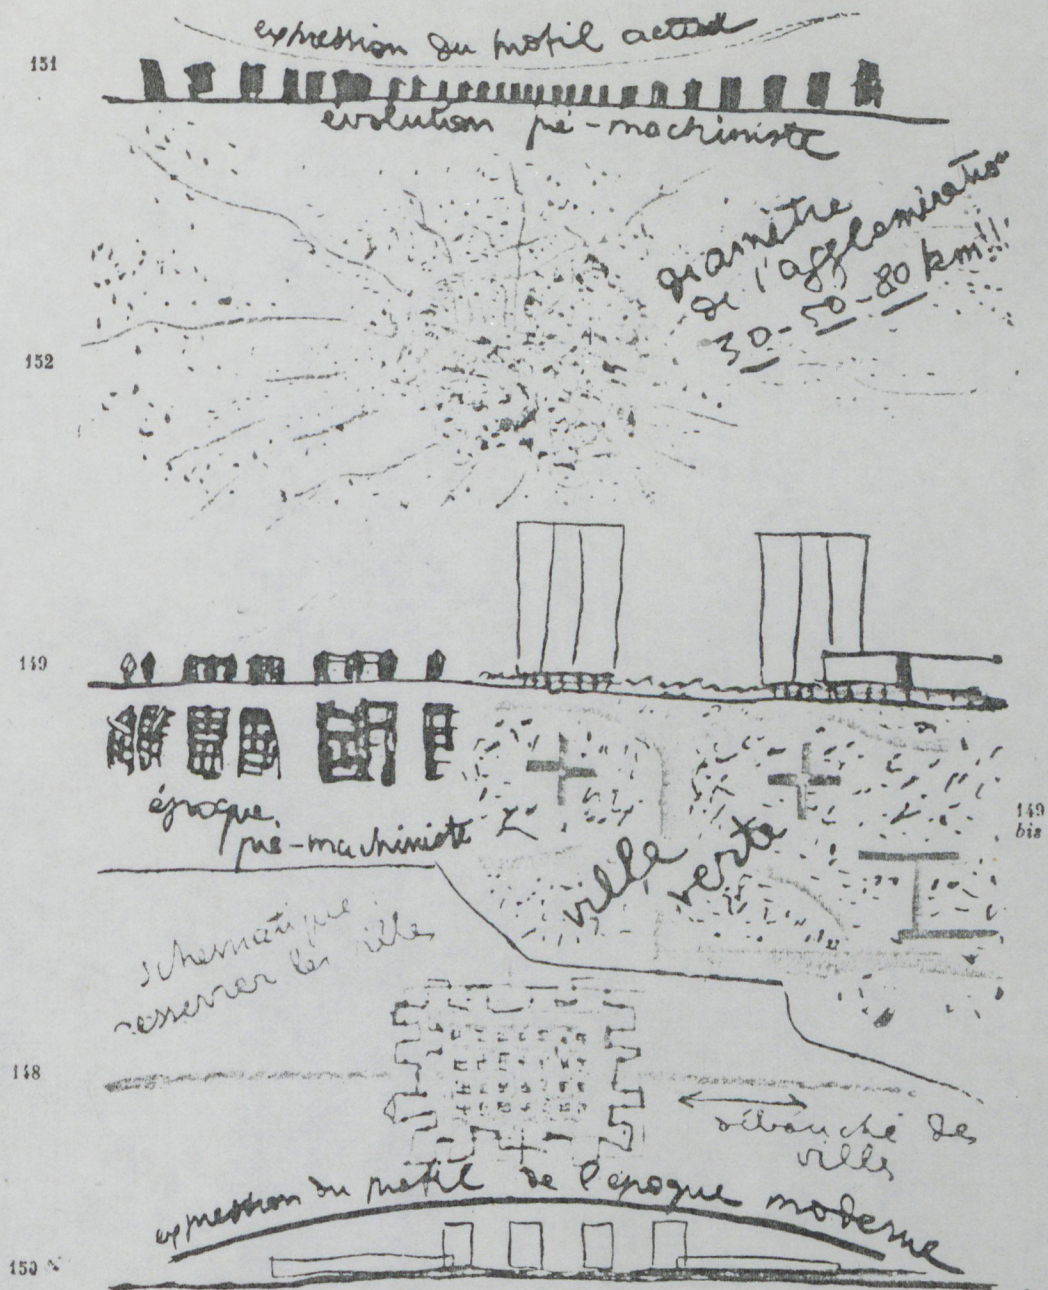 expression du profil actuel
151
évolution pré-machiniste
diamètre
de l'agglomération
30-50-80 km!!
152
149
époque
pré-machiniste
149
bis
ville
verte
schématique
resserrer les villes
148
débouché des
villes
expression du profil de l'epoque moderne
150